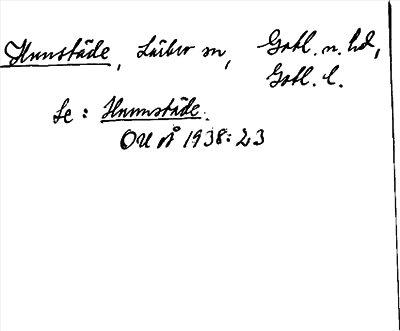 Hunstäde, Lärbro sn, Gotl. n. hd,
Gotl. l.
Se: Hunnstäde.
OU nº 1938:23